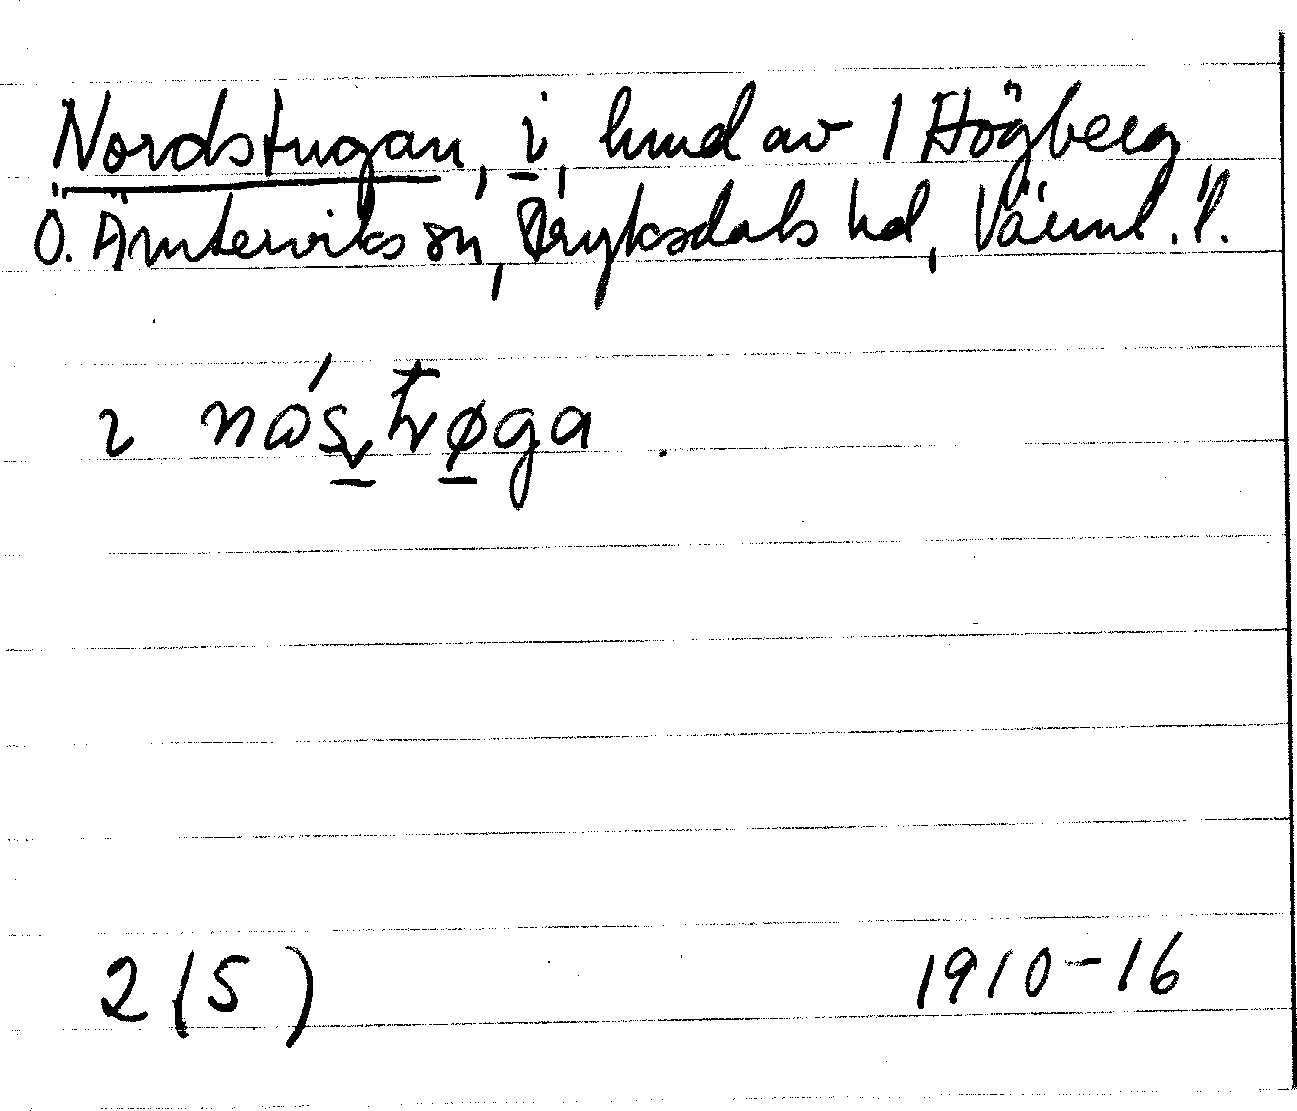 Nordstugan, i, hmd av 1 Högberg
Ö. Ämterviks sn, Fryksdals hd, Värml. l.
2(5) 1910-16